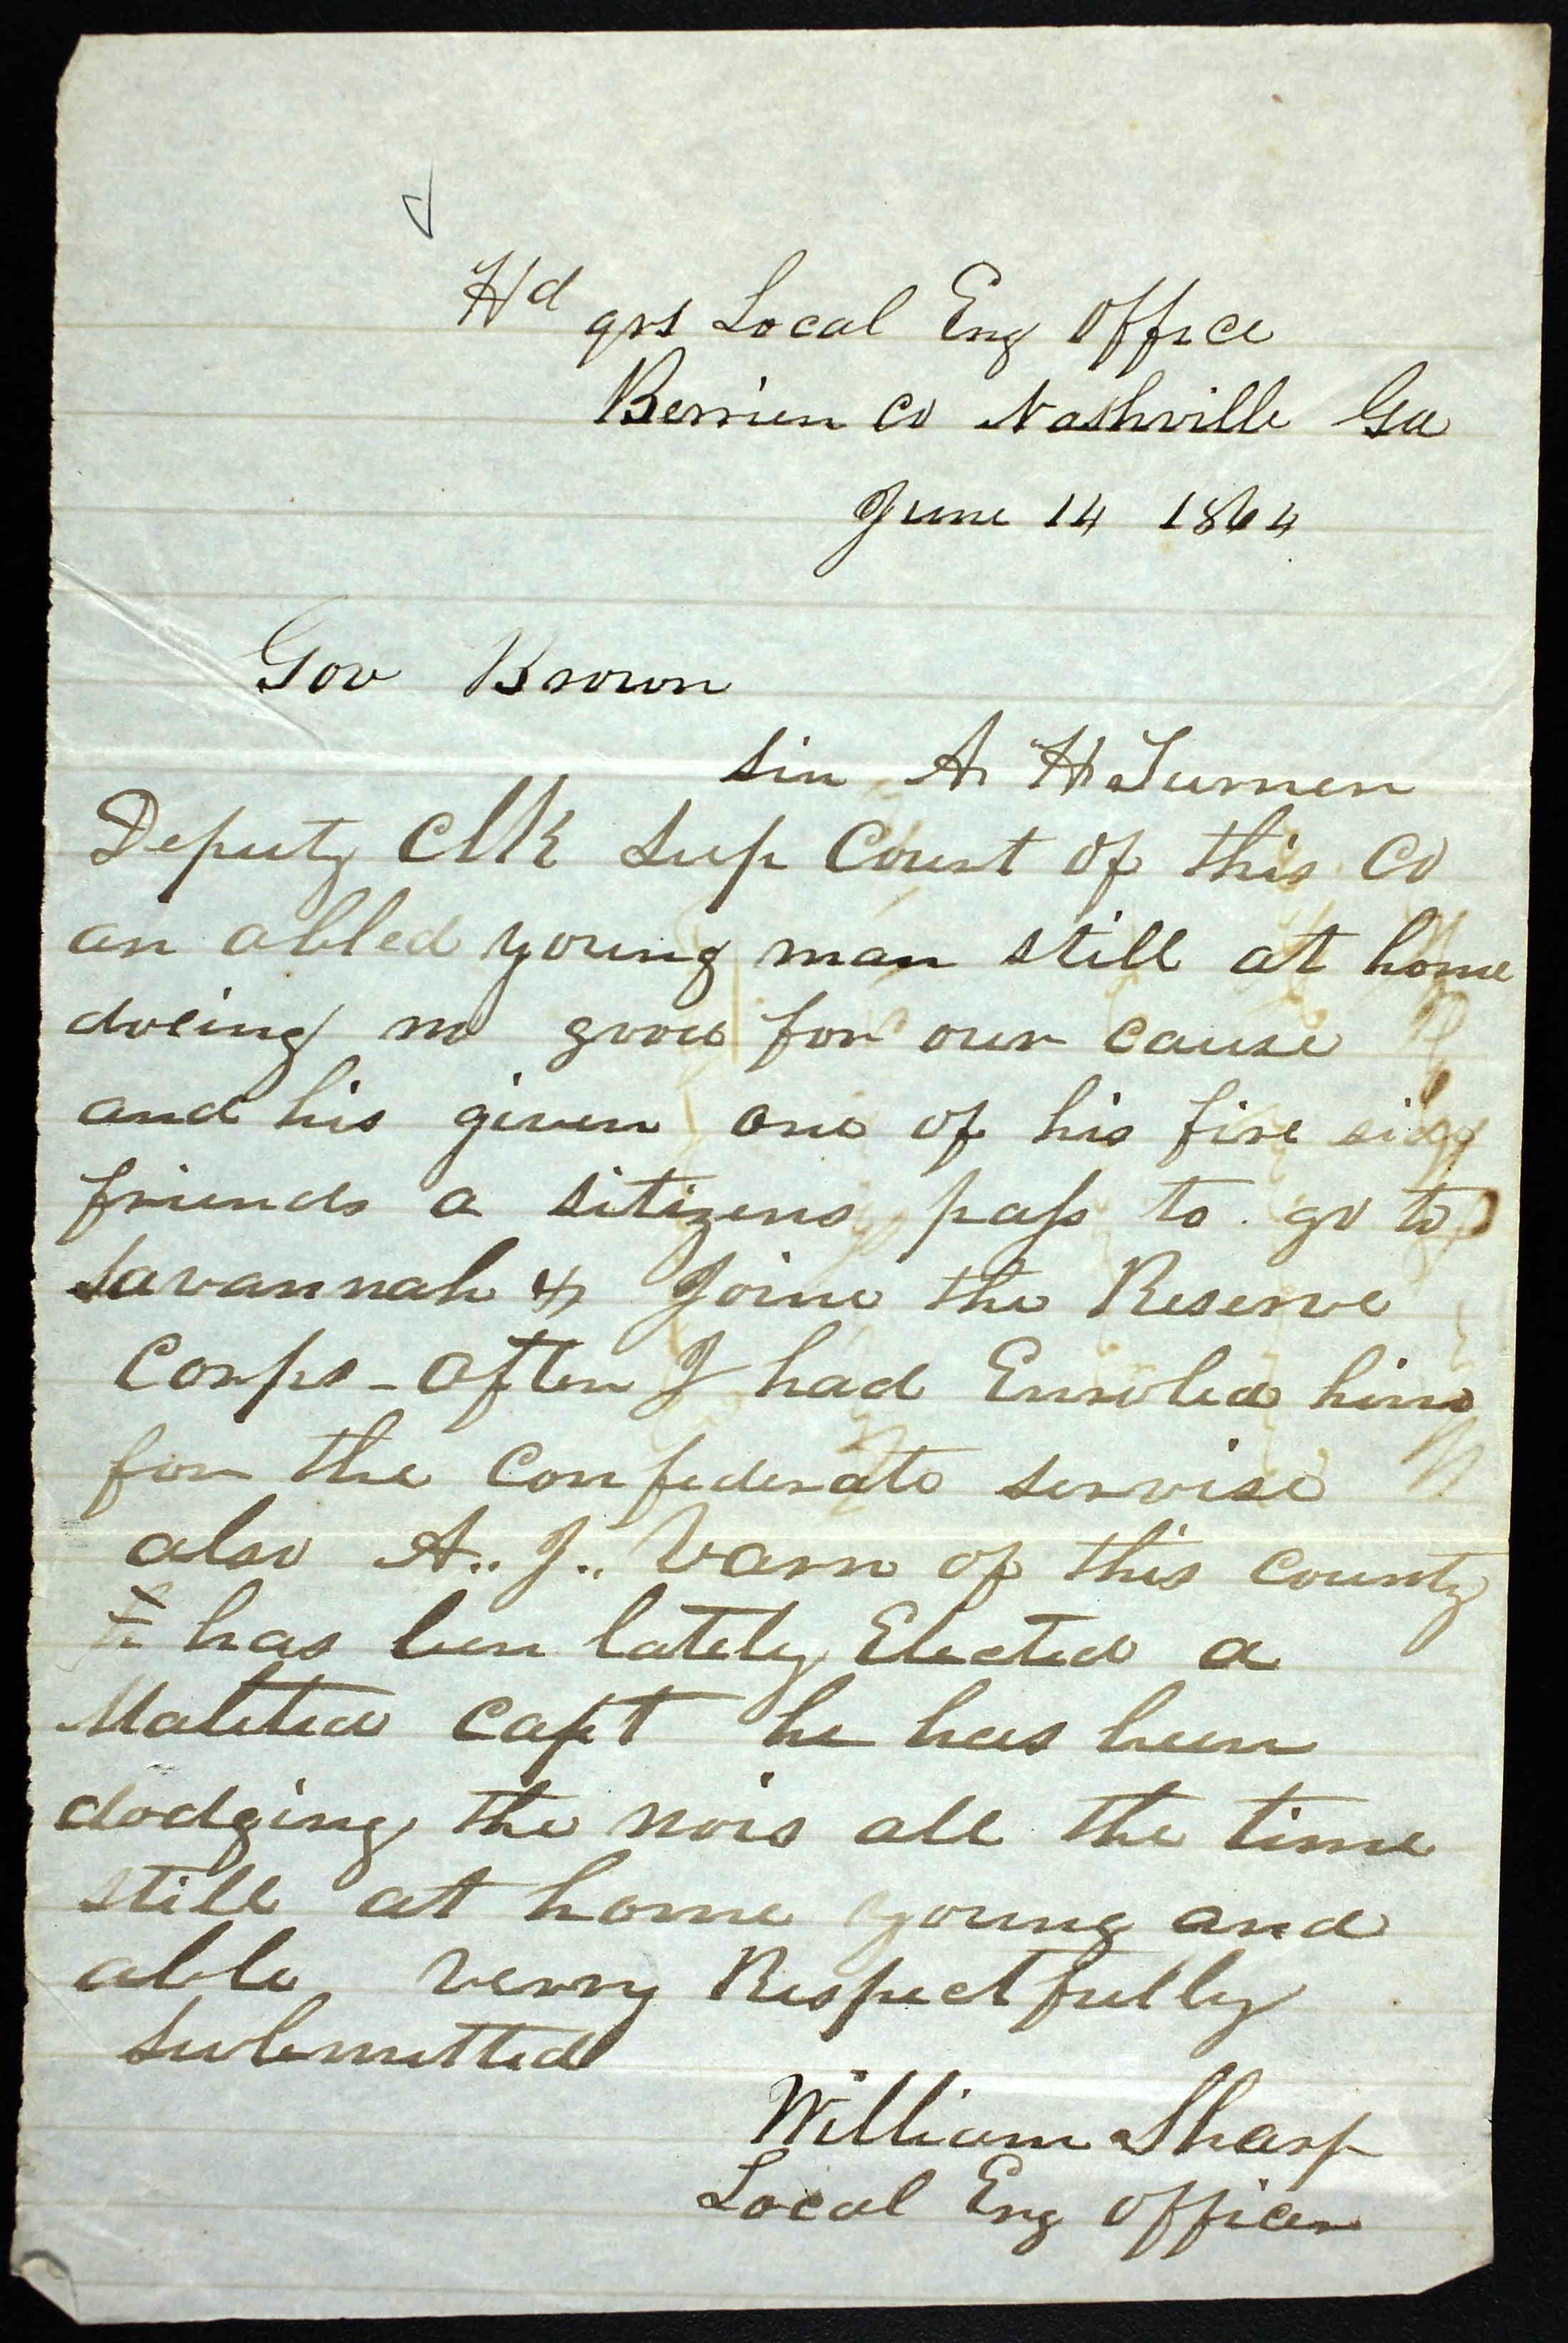 Hd qrs Local Eng Office
Berrien Co Nashville Ga
June 14 1864
Gov Brown
Sir A. H Turner
Deputy Clk Sup Court of this Co
an abled young man still at home
doeing no good for our cause
and his given one of his fire side
friends a sitizens pass to go to
Savannah & Joine the Reserve
Corps - after I had Enroled him
for the Confederate servise
also A.. J.. Varn of this County
has ben lately Elected a
Malitia Capt he has been
dodging the nois all the time
still at home young and
able verry Respectfully
Submitted
William Sharp
Local Eng Officer